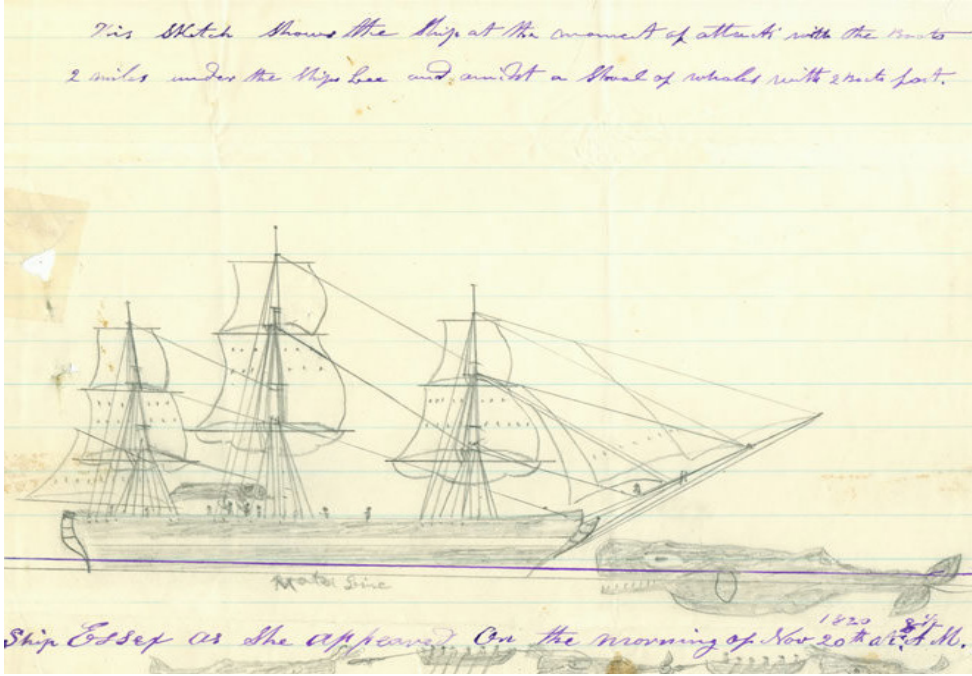 This Sketch Shows the Ship at the moment of attack with the Boats
2 miles under the Ships Lee and amidst a Shoal of whales with 2 Boats fast.
Water Line
1820
Ship Essex as She appeared On the morning of Nov 20th at 8 A.M.